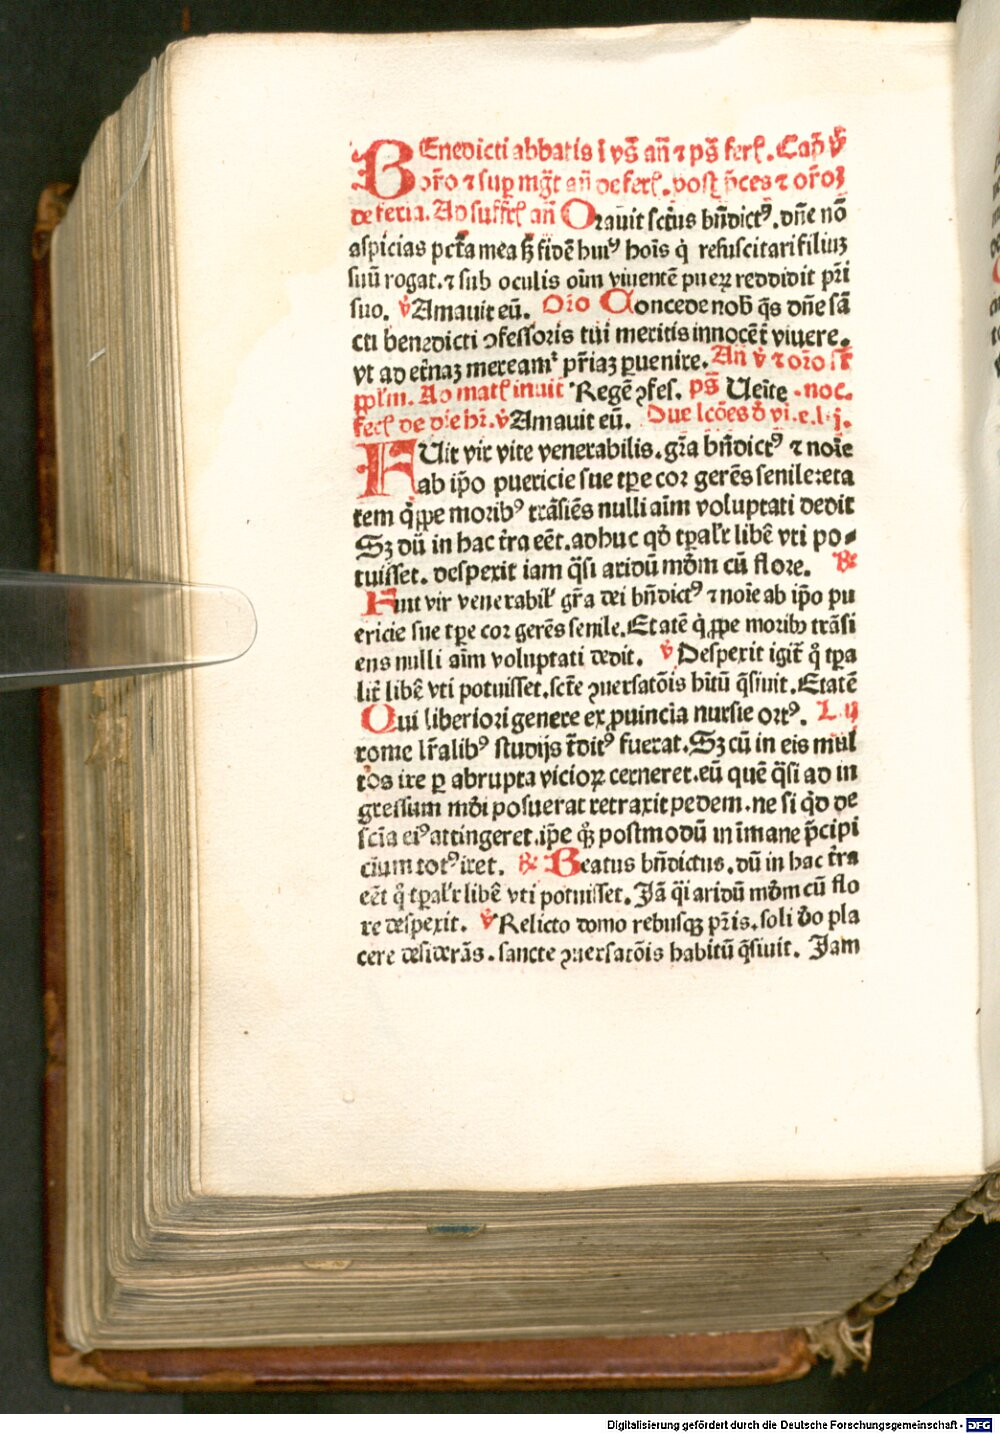 BEnedicti abbatis ĩ vs̃ añ ⁊ ps̃ ferẜ. Cap̃ ꝟ
or̃o ⁊ sup mg̃t añ de ferẜ. post p̃ces ⁊ or̃oꝫ
de feria. Ad suffrẜ añ Orauit sctũs bñdictꝰ. dñe nõ
aspicias pctã mea sꝫ fidẽ huiꝰ hoĩs q̇ resuscitari filiuꝫ
suũ rogat. ⁊ sub oculis oĩm viuentẽ pueꝝ reddidit pr̃i
suo. ꝟ Amauit eũ. Or̃o Concede nob̃ q̃s dñe sã
cti benedicti ꝯfessoris tui meritis innocẽt̃ viuere.
vt ad etñaꝫ mereamᷣ pr̃iaꝫ ꝑuenire. Añ ꝟ ⁊ or̃o
Ad matẜ inuit Regẽ ꝯfes. ps̃ Ueĩte. noc.
de die hĩ. ꝟ Amauit eũ. Due lcões
FUit vir vite venerabilis. gr̃a bñdictꝰ ⁊ noĩe
ab ip̃o puericie sue tp̃e cor gerẽs senile: eta
tem q̃ꝓpe moribꝰ trãsiẽs nulli aĩm voluptati dedit
Sꝫ dũ in hac tr̃a eẽt. adhuc qđ tp̃aľr libẽ vti po⸗
tuisset. despexit iam q̃si aridũ mđm cũ flore. ℟
Fuit vir venerabiľ gr̃a dei bñdictꝰ ⁊ noĩe ab ip̃o pu
ericie sue tp̃e cor gerẽs senile. Etatẽ q̇ꝓpe moribꝰ trãsi
ens nulli aĩm voluptati dedit. ꝟ Despexit igit̃ q̊ tp̃a
lit̃ libẽ vti potuisset. sctẽ ꝯuersatõis hĩtũ q̃siuit. Etatẽ
Qui liberiori genere ex ꝓuincia nursie ortꝰ. L. ij
rome lr̃alibꝰ studijs t̃ditꝰ fuerat. Sꝫ cũ in eis mul
tos ire ꝑ abrupta vicioꝝ cerneret. eũ quẽ q̃si ad in
gressum mđi posuerat retraxit pedem. ne si qđ de
sciã eiꝰ attingeret. ip̃e q̊ꝫ postmodũ in ĩmane p̃cipi
cium totꝰ iret. ℟ Beatus bñdictus. dũ in hac tr̃a
eẽt q̊ tp̃aľr libẽ vti potuisset. Jã q̃i aridũ mđm cũ flo
re despexit. ꝟ Relicto domo rebusqꝫ pr̃is. soli đo pla
cere desiderãs. sancte ꝯuersatõis habitũ q̃siuit. Jam
Digitalisierung gefördert durch die Deutsche Forschungsgemeinschaft - DFG